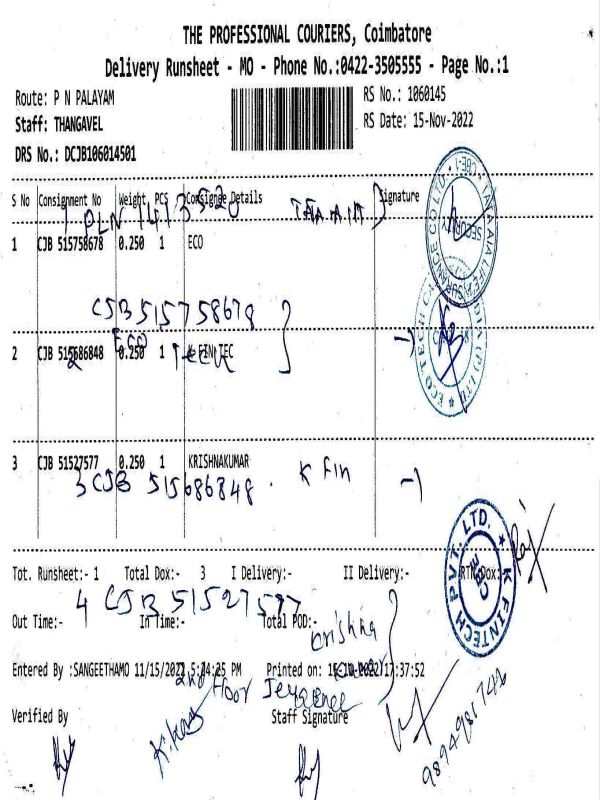 THE PROFESSIONAL COURIERS, Coimbatore
Delivery Runsheet - MO - Phone No.:0422-3505555 - Page No.:1
Route: P N PALAYAM
RS No.: 1060145
Staff: THANGAVEL
RS Date: 15-Nov-2022
DRS No.: DCJB106014501
S No Consignment No Weight PCS Consignee Details Signature
1 PLN 1413520
1 CJB 515758678 0.250 1 ECO
CJB 515758678
ECO Teck
2 CJB 515686848 0.250 1 K FIN TEC
3 CJB 51527577 0.250 1 KRISHNAKUMAR
3 CJB 515686848 . K Fin
Tot. Runsheet:- 1 Total Dox:- 3 I Delivery:- II Delivery:- RTN Dox:-
4 CJB 51527577
Out Time:- In Time:- Total POD:-
Krishna
Kumar
Entered By :SANGEETHAMO 11/15/2022 5:04:25 PM Printed on: 15-11-2022 17:37:52
2nd Floor
Verified By
Staff Signature
K FINTECH PVT. LTD.
CBE